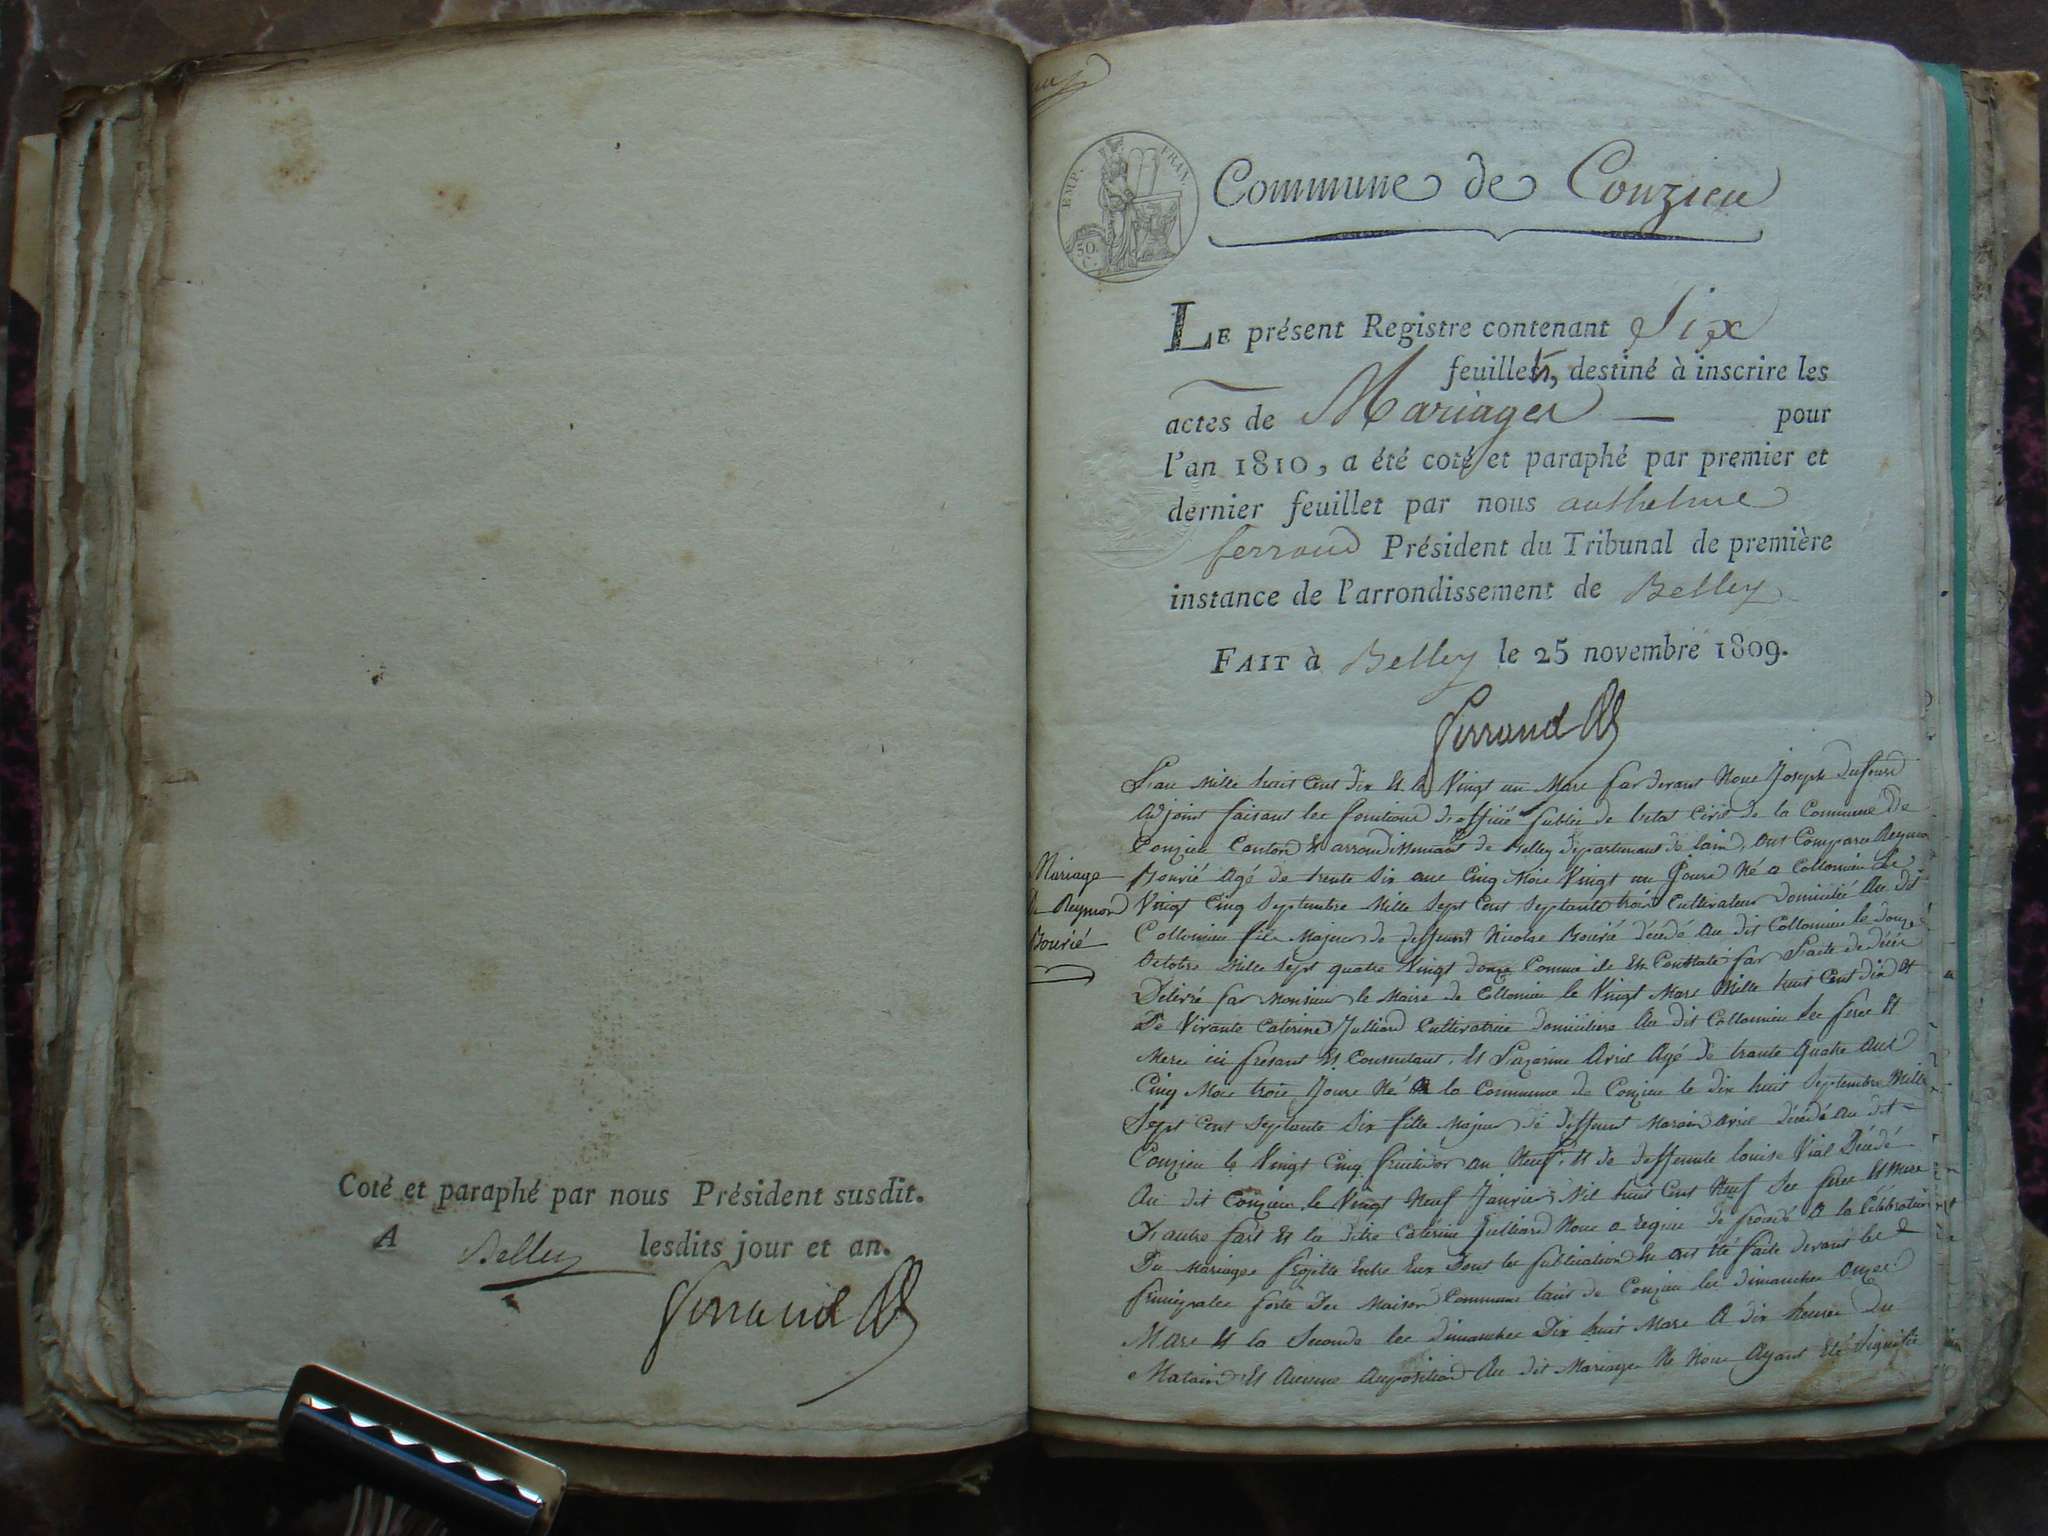 Coté et paraphé par nous Président susdit.
A Belley lesdits jour et an.
Ferrand
EMP. FRAN.
50.
C.
Commune de Conzieu
LE présent Registre contenant Six
feuillets, destiné à inscrire les
actes de Mariages — pour
l'an 1810, a été coté et paraphé par premier et
dernier feuillet par nous anthelme
ferrand Président du Tribunal de première
instance de l'arrondissement de Belley
FAIT à Belley le 25 novembre 1809.
Ferrand
Mariage
De Reymond
Bouvié
L'an Mille huit Cent dix Et le Vingt un Mars par devant Nous Joseph
Adjoint faisant les fonctions d'officié public de letat Civil de la Commune De
Conzieu Canton Et arrondissement de Belley departement de lain, ont Comparu Reymon
Bouvié Agé de trente Six ans Cinq Mois Vingt un Jours Né a Collomieu Le
Vingt Cinq Septembre Mille Sept Cent Septante trois Cultivateur Domicilié Au dit
Collomieu fils Majeur de deffunt Nicolas Bouvié décédé Au dit Collomieu le douze
Octobre Mille Sept quatre Vingt douze Comme il Est Constaté par L'acte de décès
Délivré par Monsieur le Maire de Collomieu le Vingt Mars Mille huit Cent Dix Et
De Vivante Caterine Julliard Cultivatrice domiciliere Au dit Collomieu Ses pere Et
Mere ici presant Et Consentant, Et Lazarine Avril Agé de trante Quatre Ans
Cinq Mois trois Jours Né a la Commune de Conzieu le dix huit Septembre Mille
Sept Cent Septante Six fille Majeur de deffunt Marain Avril décédé Au dit
Conzieu le Vingt Cinq fructidor an Neuf, Et de deffunte louise Vial Décédé
Au dit Conzieu le Vingt Neuf Janvier Mil huit Cent Neuf Ses pere Et Mere
D'autre part Et la dite Caterine Julliard Nous a de procedé A la Célébration
Du Mariage projetté Entre Eux Dont les publication En ont été faite devant la
principalle porte De Maison Commune de Conzieu les dimanches Onze
Mars Et la Seconde les dimanches Dix huit Mars A dix heures Du
Matain Et Aucune Au dit Mariage Ne Nous Ayant Eté Signifié